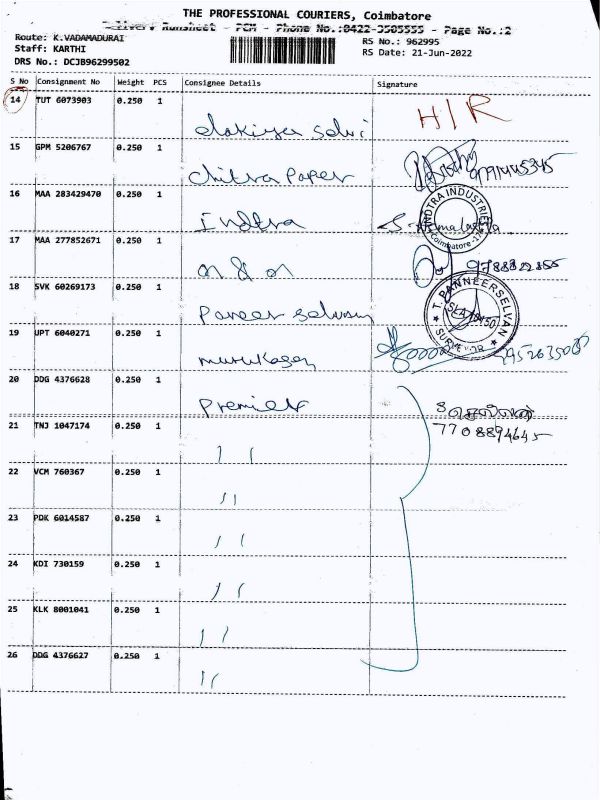 THE PROFESSIONAL COURIERS, Coimbatore
Delivery Runsheet - PCM - Phone No.:0422-3505555 - Page No.:2
Route: K.VADAMADURAI RS No.: 962995
Staff: KARTHI RS Date: 21-Jun-2022
DRS No.: DCJB96299502
S No Consignment No Weight PCS Consignee Details Signature
14 TUT 6073903 0.250 1
elakiya selvi H/R
15 GPM 5206767 0.250 1
chitra Paper
16 MAA 283429470 0.250 1
Indtra INDTRA INDUSTRIES
Coimbatore
17 MAA 277852671 0.250 1
9788822855
18 SVK 60269173 0.250 1
Paneer selvam T. PANNEERSELVAN
SURVEYOR
19 UPT 6040271 0.250 1
murukasan
20 DDG 4376628 0.250 1
Premier
21 TNJ 1047174 0.250 1 7708894645
''
22 VCM 760367 0.250 1
''
23 PDK 6014587 0.250 1
''
24 KDI 730159 0.250 1
''
25 KLK 8001041 0.250 1
''
26 DDG 4376627 0.250 1
''